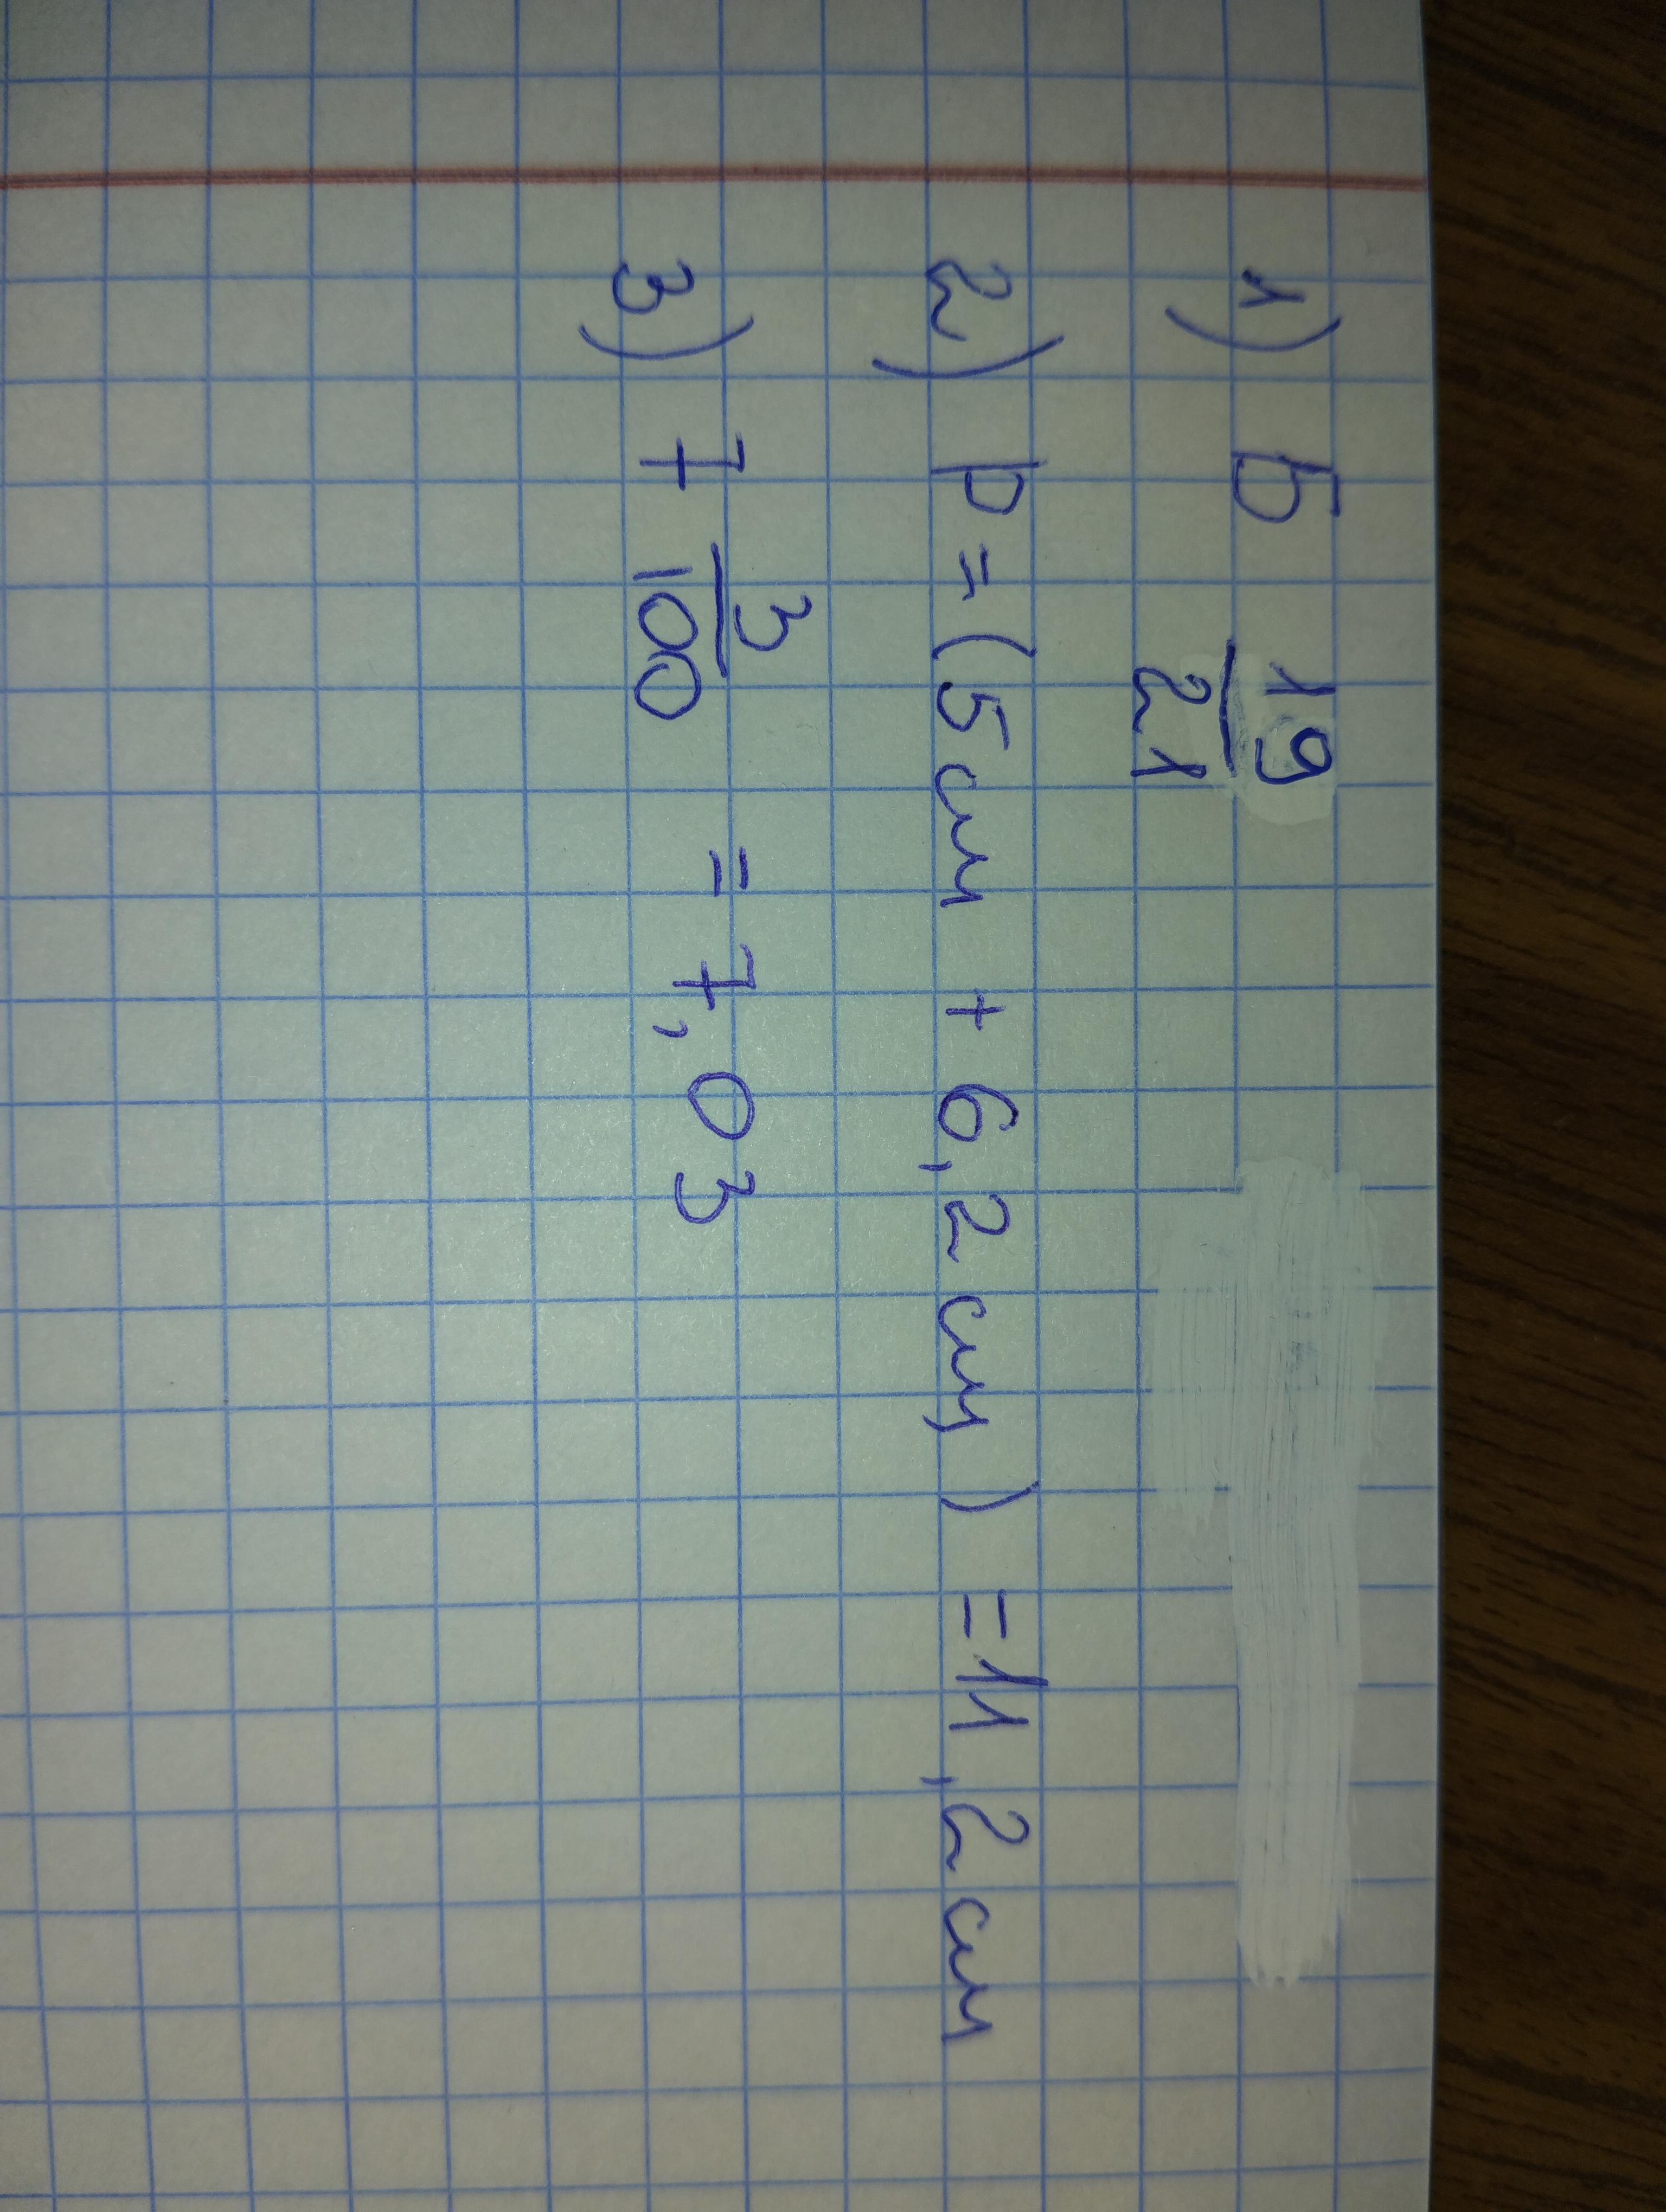 1) Б 19/21
2) P = (5 см + 6,2 см) = 11,2 см
3) 7 3/100 = 7,03